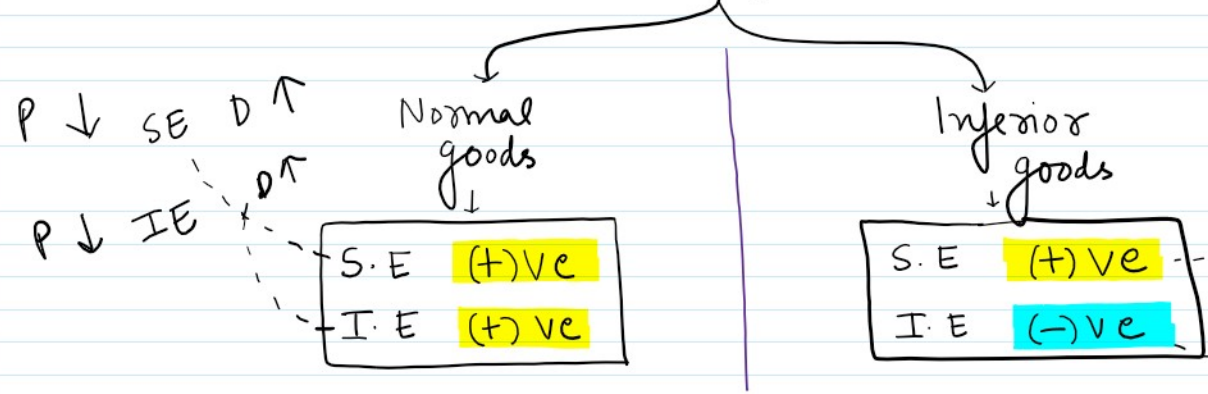 P ↓ SE D ↑
P ↓ IE D ↑
Normal
goods
↓
S.E (+)ve
I.E (+)ve
Inferior
goods
↓
S.E (+)ve
I.E (-)ve